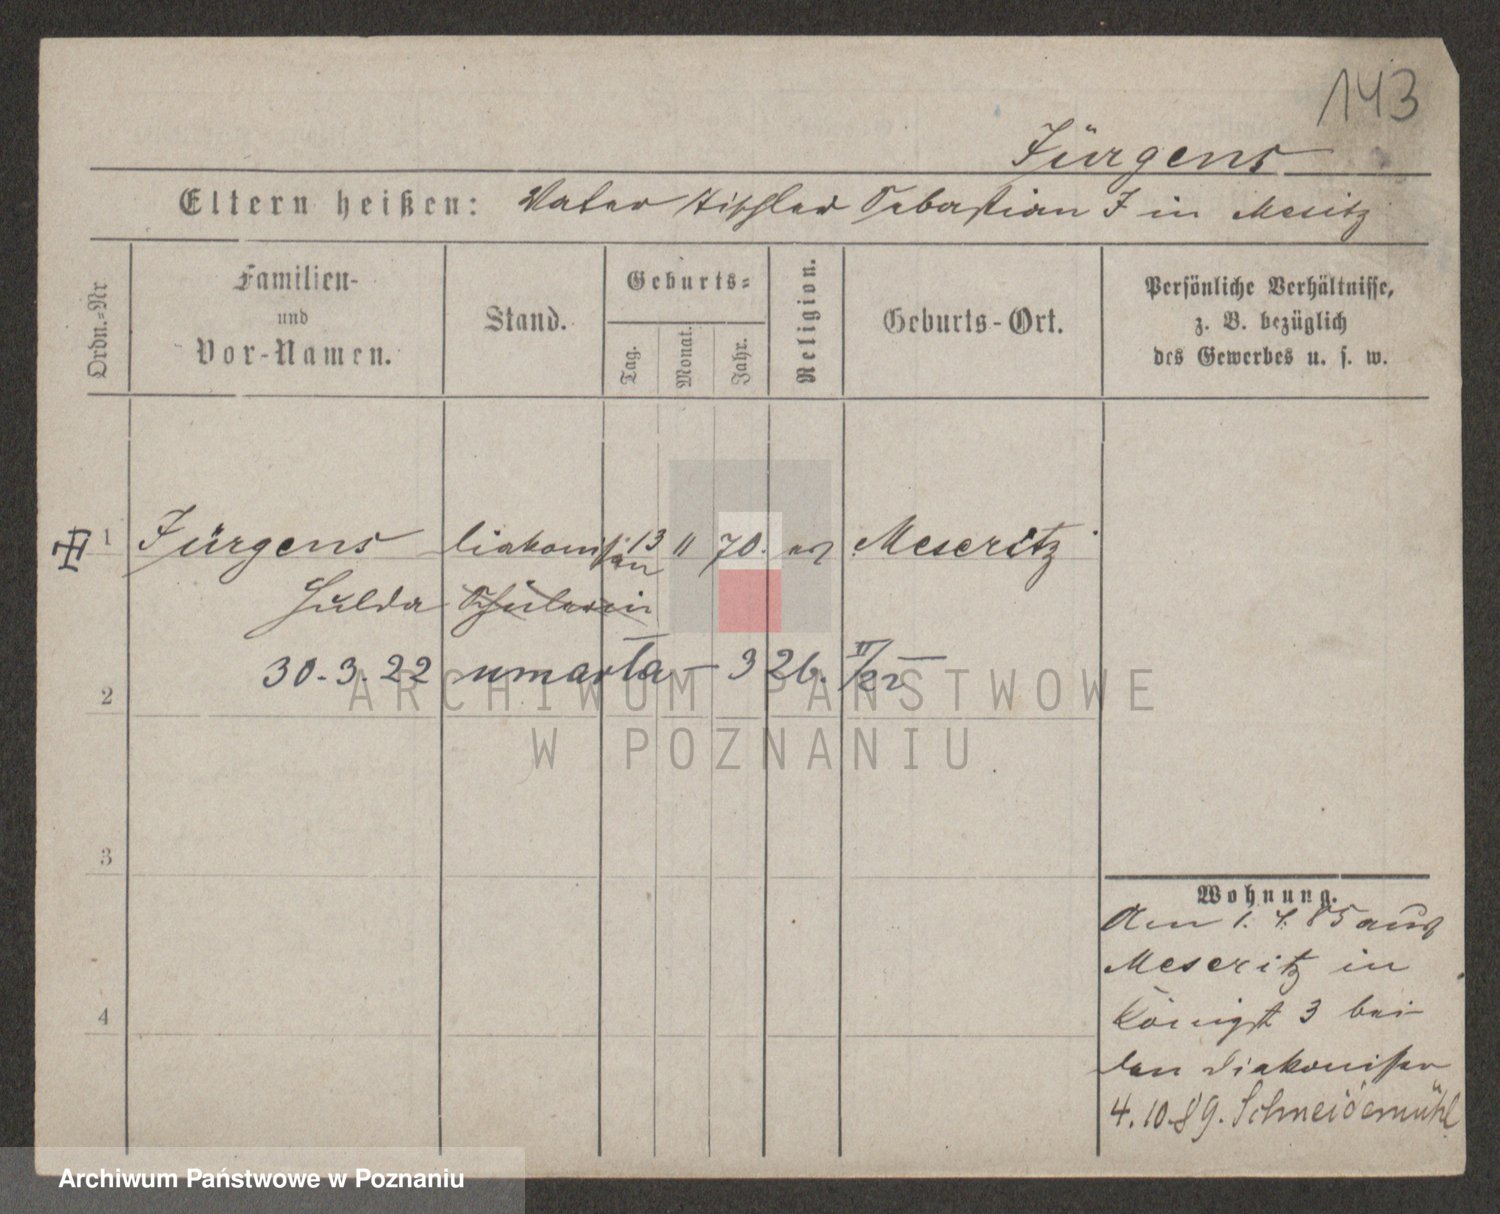 143
Jürgens
Eltern heißen: Vater Tischler Sebastian J in Mesitz
Ordn.-Nr
Familien-
und
Vor-Namen.
Stand.
Geburts-
Tag.
Monat.
Jahr.
Religion.
Geburts-Ort.
Persönliche Verhältnisse,
z. B. bezüglich
des Gewerbes u. s. w.
1 Jürgens Diakonissen 13 11 70. Meseritz
Hulda Schülerin
30.3.22 umarła - 326. II/22
2
3
4
Wohnung.
Am 1. 4. 85 aus
Meseritz in
Königst 3 bei
den Diakonissen
4.10.89. Schneidemühl
ARCHIWUM PAŃSTWOWE
W POZNANIU
Archiwum Państwowe w Poznaniu